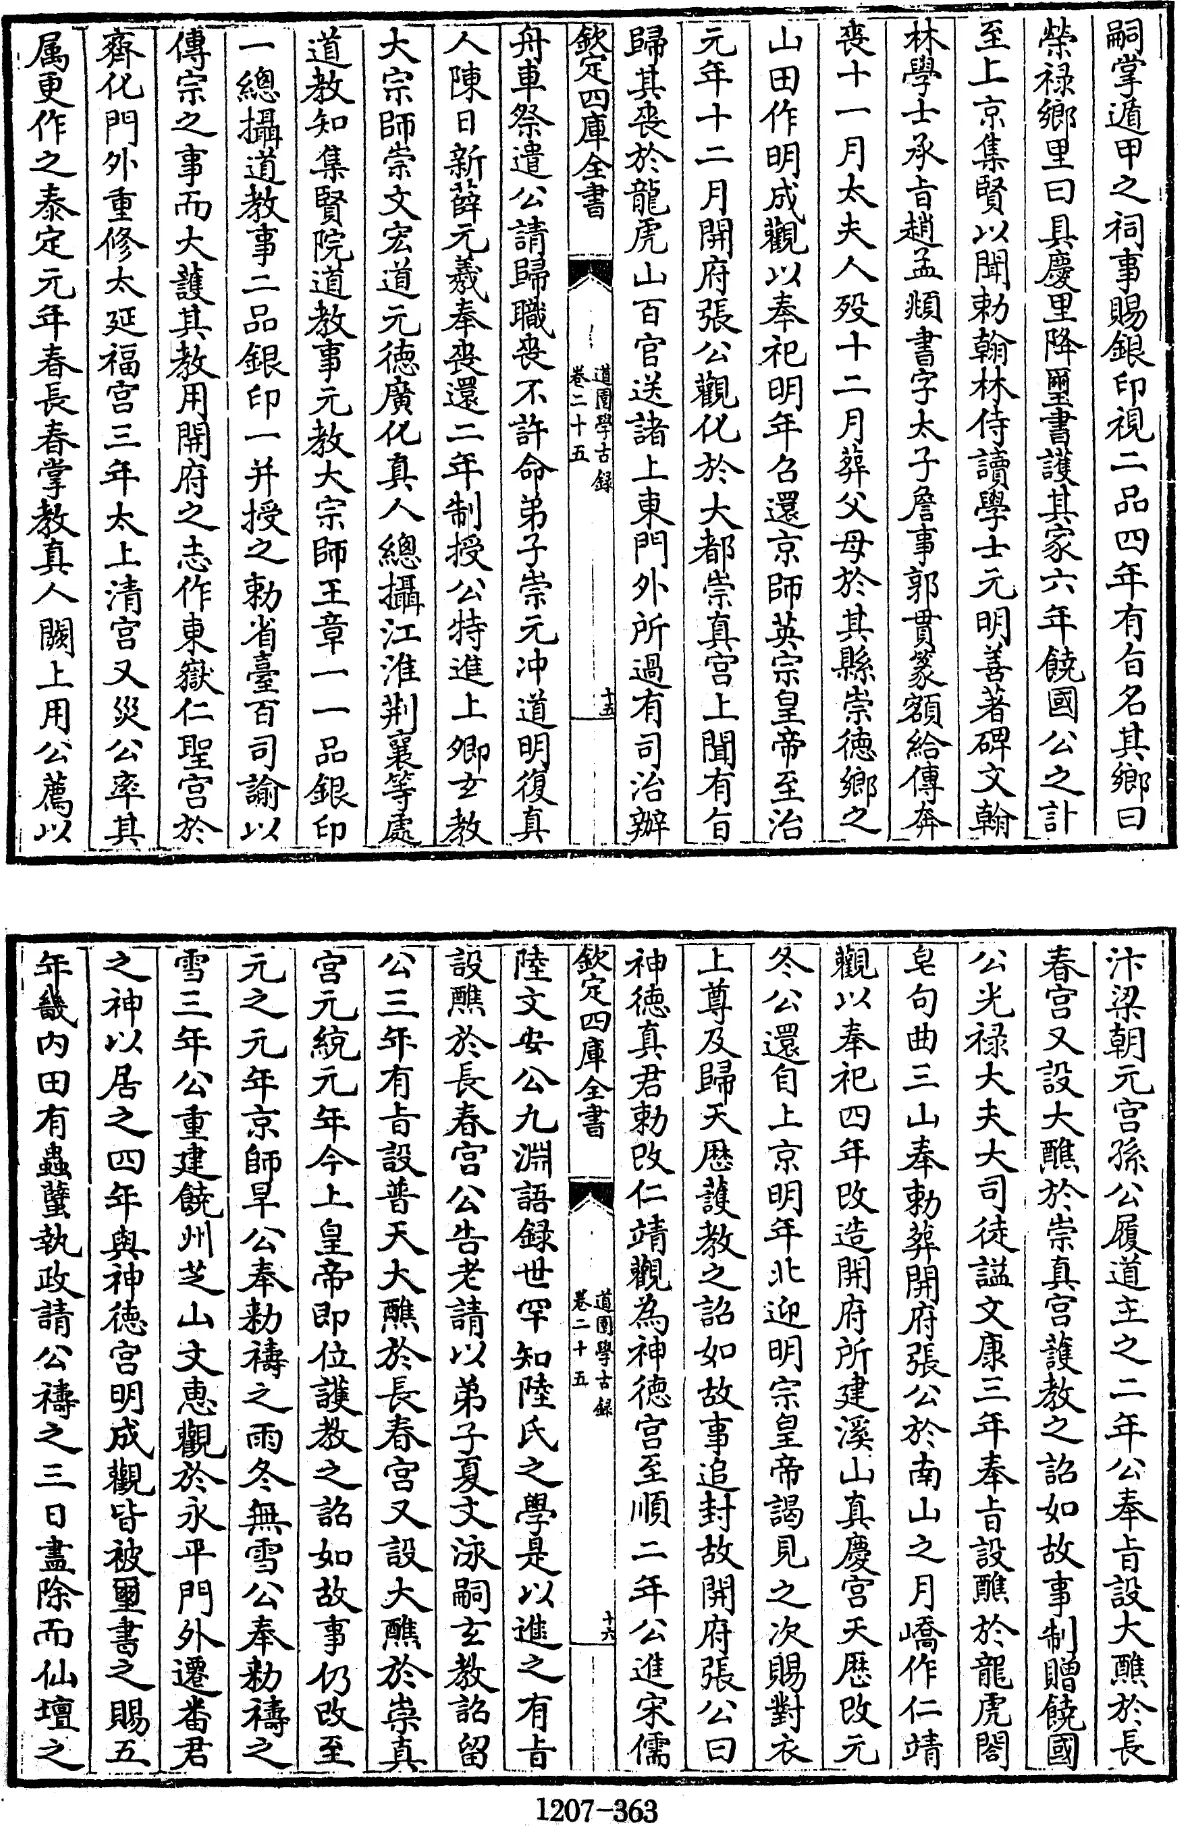 嗣掌遁甲之祠事賜銀印視二品四年有旨名其鄉曰
榮禄鄉里曰具慶里降璽書護其家六年饒國公之訃
至上京集賢以聞勅翰林侍讀學士元明善著碑文翰
林學士承旨趙孟頫書字太子詹事郭貫篆額給傳奔
喪十一月太夫人殁十二月葬父母於其縣崇德鄉之
山田作明成觀以奉祀明年召還京師英宗皇帝至治
元年十二月開府張公觀化於大都崇真宫上聞有旨
歸其喪於龍虎山百官送諸上東門外所過有司治辦
欽定四庫全書
道園學古録
卷二十五
十五
舟車祭遣公請歸職喪不許命弟子崇元冲道明復真
人陳日新薛元羲奉喪還二年制授公特進上卿玄教
大宗師崇文宏道元德廣化真人總攝江淮荆襄等處
道教知集賢院道教事元教大宗師玉章一一品銀印
一總攝道教事二品銀印一并授之勅省臺百司諭以
傳宗之事而大護其教用開府之志作東嶽仁聖宫於
齊化門外重修太延福宫三年太上清宫又災公率其
属更作之泰定元年春長春掌教真人闕上用公薦以
汴梁朝元宫孫公履道主之二年公奉旨設大醮於長
春宫又設大醮於崇真宫護教之詔如故事制贈饒國
公光禄大夫大司徒謚文康三年奉旨設醮於龍虎閤
皂句曲三山奉勅葬開府張公於南山之月嶠作仁靖
觀以奉祀四年改造開府所建溪山真慶宫天厯改元
冬公還自上京明年北迎明宗皇帝謁見之次賜對衣
上尊及歸天厯護教之詔如故事追封故開府張公曰
神德真君勅改仁靖觀為神德宫至順二年公進宋儒
欽定四庫全書
道園學古録
卷二十五
十六
陸文安公九淵語録世罕知陸氏之學是以進之有旨
設醮於長春宫公告老請以弟子夏文泳嗣玄教詔留
公三年有旨設普天大醮於長春宫又設大醮於崇真
宫元統元年今上皇帝即位護教之詔如故事仍改至
元之元年京師旱公奉勅禱之雨冬無雪公奉勅禱之
雪三年公重建饒州芝山文惠觀於永平門外遷畨君
之神以居之四年與神德宫明成觀皆被璽書之賜五
年畿内田有蟲蠥執政請公禱之三日盡除而仙壇之
1207-363